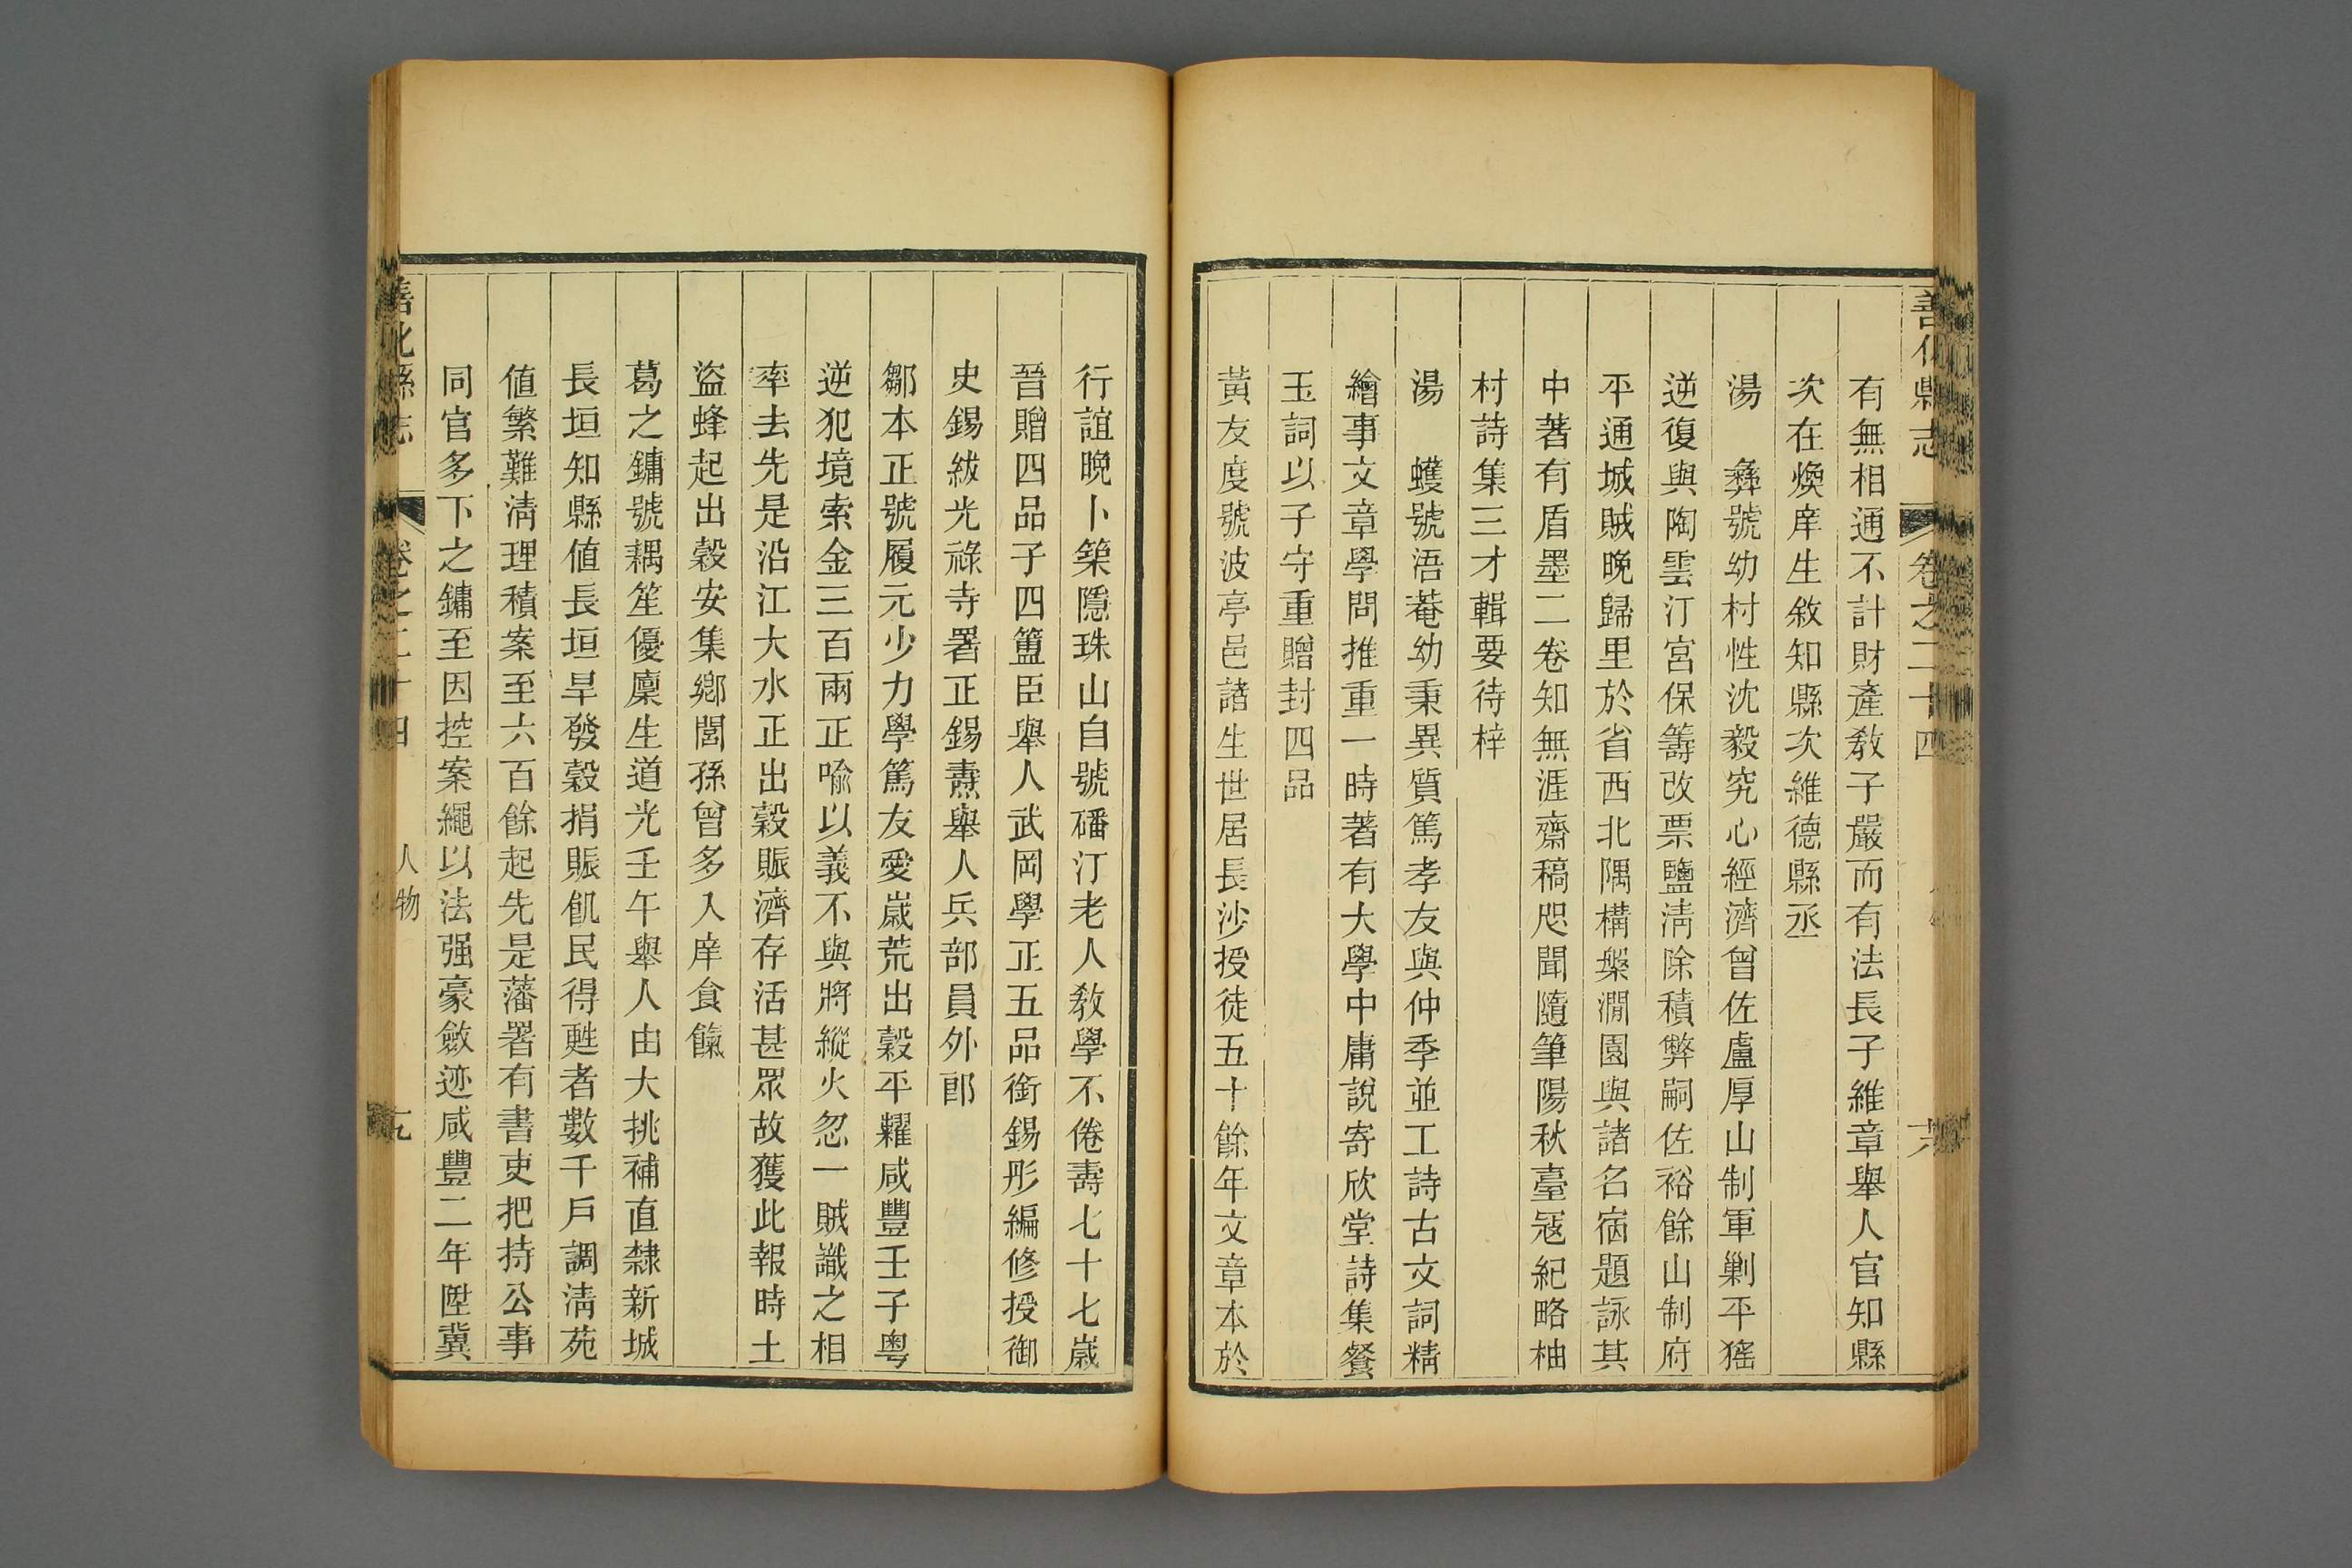 善化縣志 卷之二十四
有無相通不計財產教子嚴而有法長子維章舉人官知縣
次在煥庠生敘知縣次維德縣丞
湯 彝號幼村性沈毅究心經濟曾佐盧厚山制軍剿平猺
逆復與陶雲汀宮保籌改票鹽淸除積弊嗣佐裕餘山制府
平通城賊晚歸里於省西北隅構槃澗園與諸名宿題詠其
中著有盾墨二卷知無涯齋稿咫聞隨筆陽秋臺冦紀略柚
村詩集三才輯要待梓
湯 蠖號浯菴幼秉異質篤孝友與仲季並工詩古文詞精
繪事文章學問推重一時著有大學中庸說寄欣堂詩集餐
玉詞以子守重贈封四品
黃友度號波亭邑諸生世居長沙授徒五十餘年文章本於
行誼晚卜築隱珠山自號磻汀老人教學不倦壽七十七歲
晉贈四品子四簠臣舉人武岡學正五品銜錫彤編修授御
史錫紱光祿寺署正錫燾舉人兵部員外郎
鄒本正號履元少力學篤友愛歲荒出穀平糶咸豐壬子粵
逆犯境索金三百兩正喻以義不與將縱火忽一賊識之相
率去先是沿江大水正出穀賑濟存活甚眾故獲此報時土
盜蜂起出穀安集鄉閭孫曾多入庠食餼
葛之鏞號耦笙優廩生道光壬午舉人由大挑補直隸新城
長垣知縣值長垣旱發穀捐賑飢民得甦者數千戶調淸苑
值繁難淸理積案至六百餘起先是藩署有書吏把持公事
同官多下之鏞至因控案繩以法强豪斂迹咸豐二年陞冀
善化縣志 卷之二十四 人物